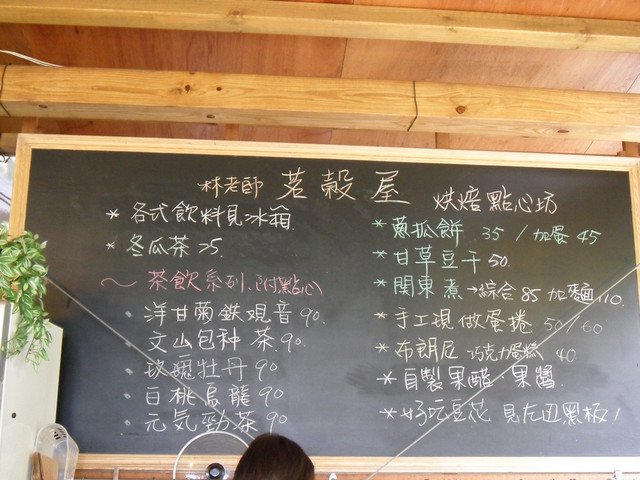 林老師 茗穀屋 烘焙點心坊
* 各式飲料見冰箱
* 冬瓜茶 25.
～ 茶飲系列.附點心
• 洋甘菊鉄観音 90.
• 文山包种茶. 90.
• 玫瑰牡丹 90
• 白桃烏龍 90
• 元気勁茶 90
* 蔥抓餅 35 / 加蛋 45
* 甘草豆干 50
* 関東煮 →綜合 85 加麵 110.
* 手工現做蛋捲 50/60
* 布朗尼 巧克力蛋糕 40.
* 自製果醋、果醬.
* 好吃豆花 見左丑黑板!